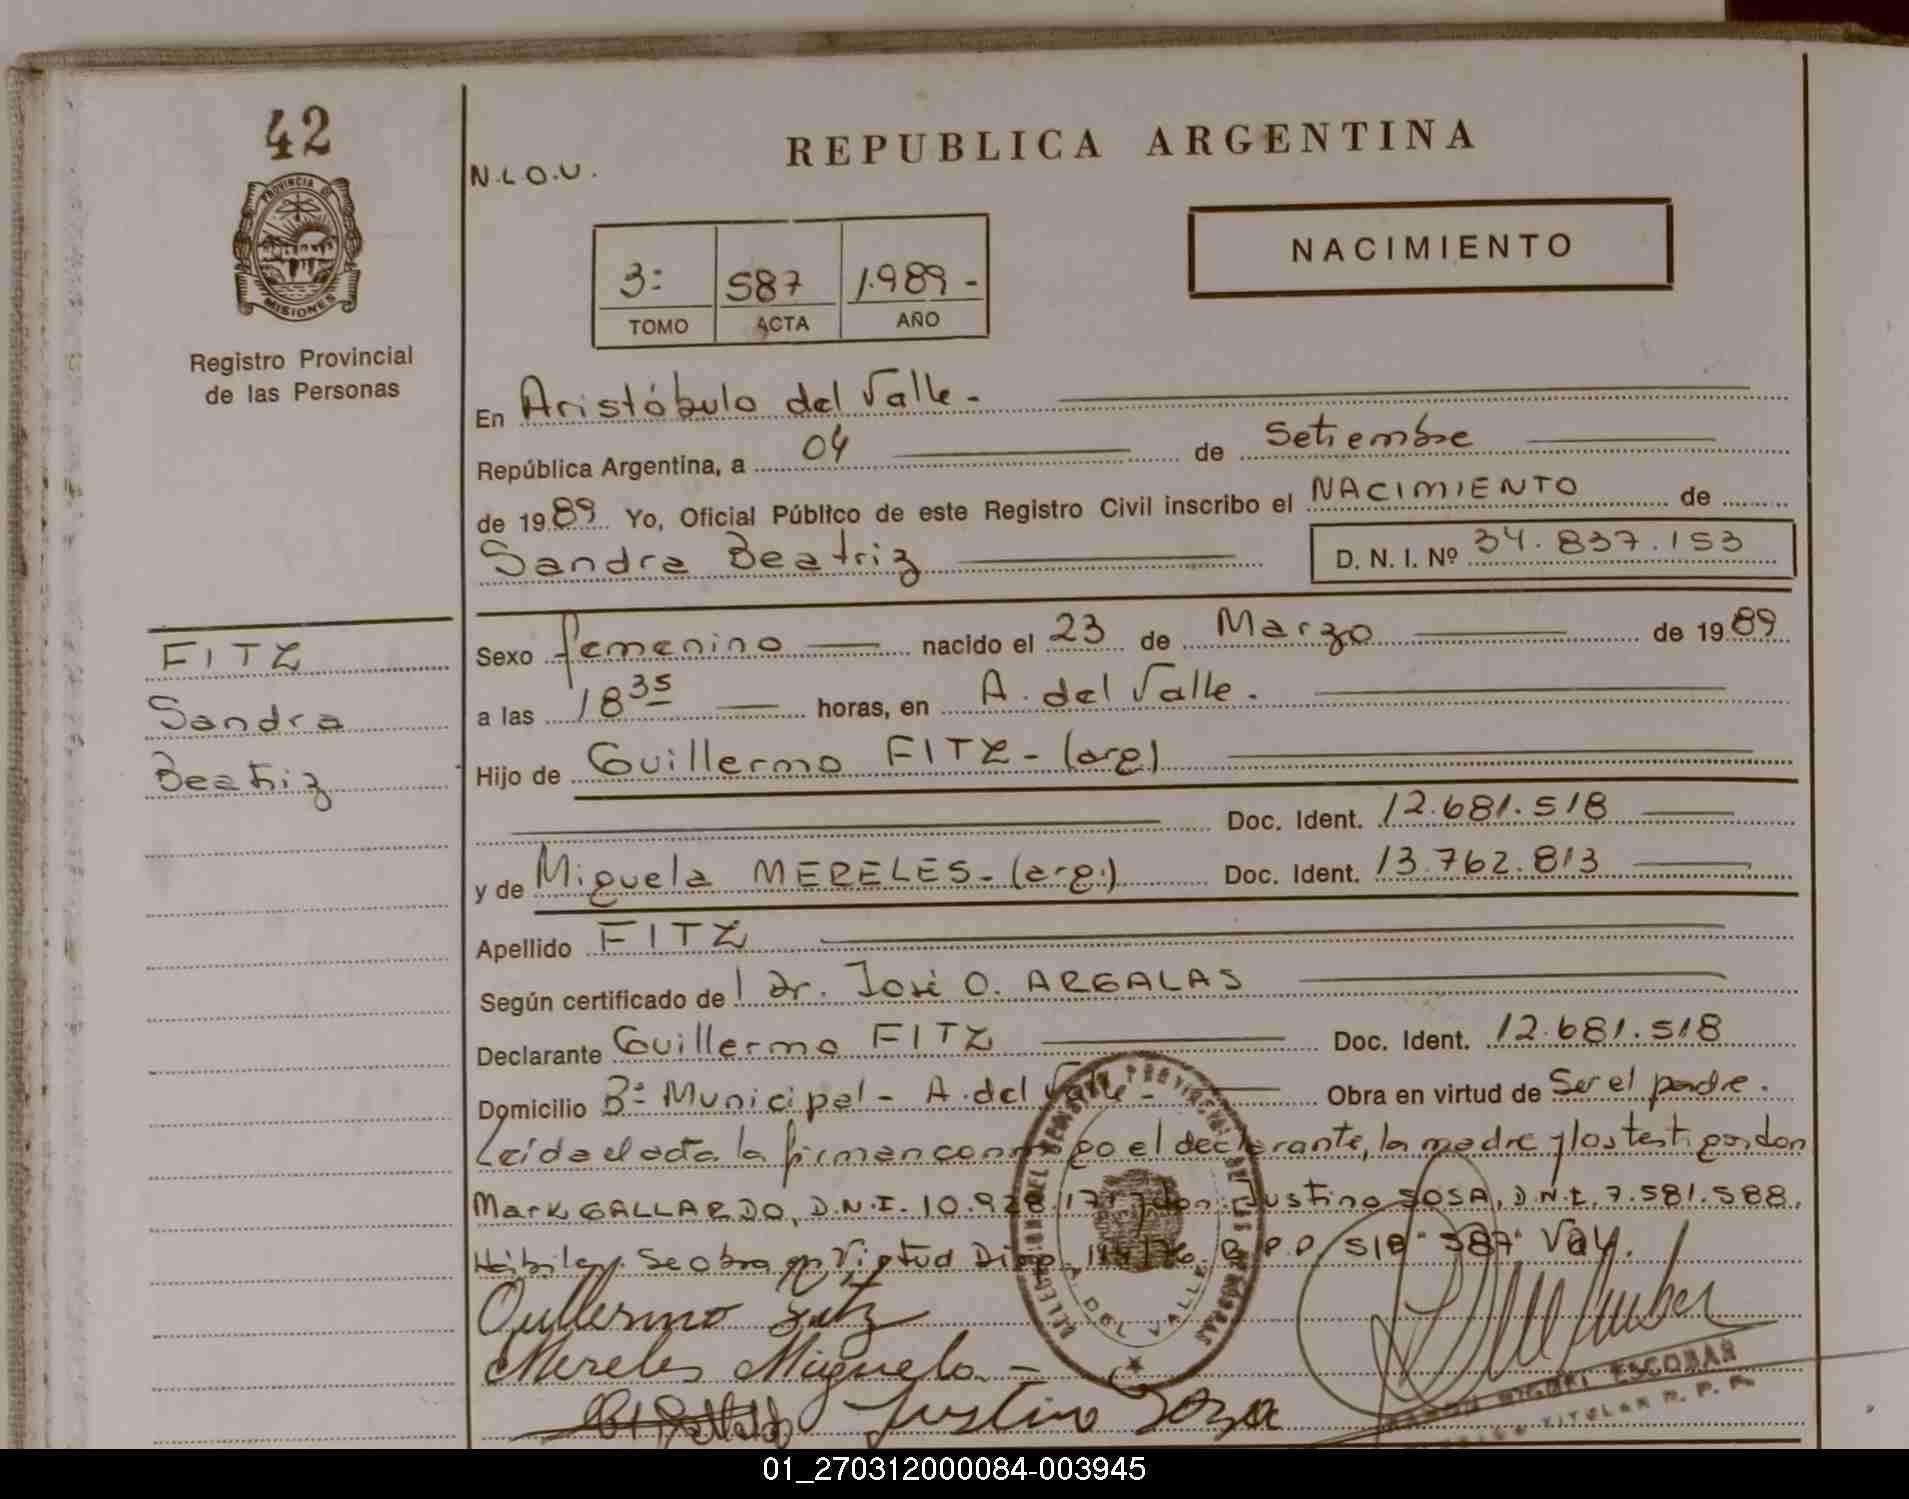 42
PROVINCIA DE
MISIONES
Registro Provincial
de las Personas
FITZ
Sandra
Beatriz
N.L.O.U.
REPUBLICA ARGENTINA
3: 587 1.989-
TOMO ACTA AÑO
NACIMIENTO
En Aristóbulo del Valle.
República Argentina, a 04 de Setiembre
de 1989 Yo, Oficial Público de este Registro Civil inscribo el NACIMIENTO de
Sandra Beatriz D. N. I. Nº 34.837.153
Sexo femenino nacido el 23 de Marzo de 1989
a las 18 35 horas, en A. del Valle.
Hijo de Guillermo FITZ - (arg)
Doc. Ident. 12.681.518
y de Miguela MERELES - (arg.) Doc. Ident. 13.762.813
Apellido FITZ
Según certificado de Dr. José O. ARGALAS
Declarante Guillermo FITZ Doc. Ident. 12.681.518
Domicilio Bº Municipal - A. del Valle - Obra en virtud de Ser el padre.
Leída el acta la firman conmigo el declarante, la madre y los testigos don
Mark GALLARDO, D.N.I. 10.928. don Justino SOSA, D.N.I. 7.581.588.
Hábiles. Se obra en Virtud R.P.P. S/Bº 587 Vay.
Guillermo Fitz
Mereles Miguela -
Justino Soza
A. DEL VALLE
RAMON MIGUEL ESCOBAR
TITULAR R. P. P.
01_270312000084-003945